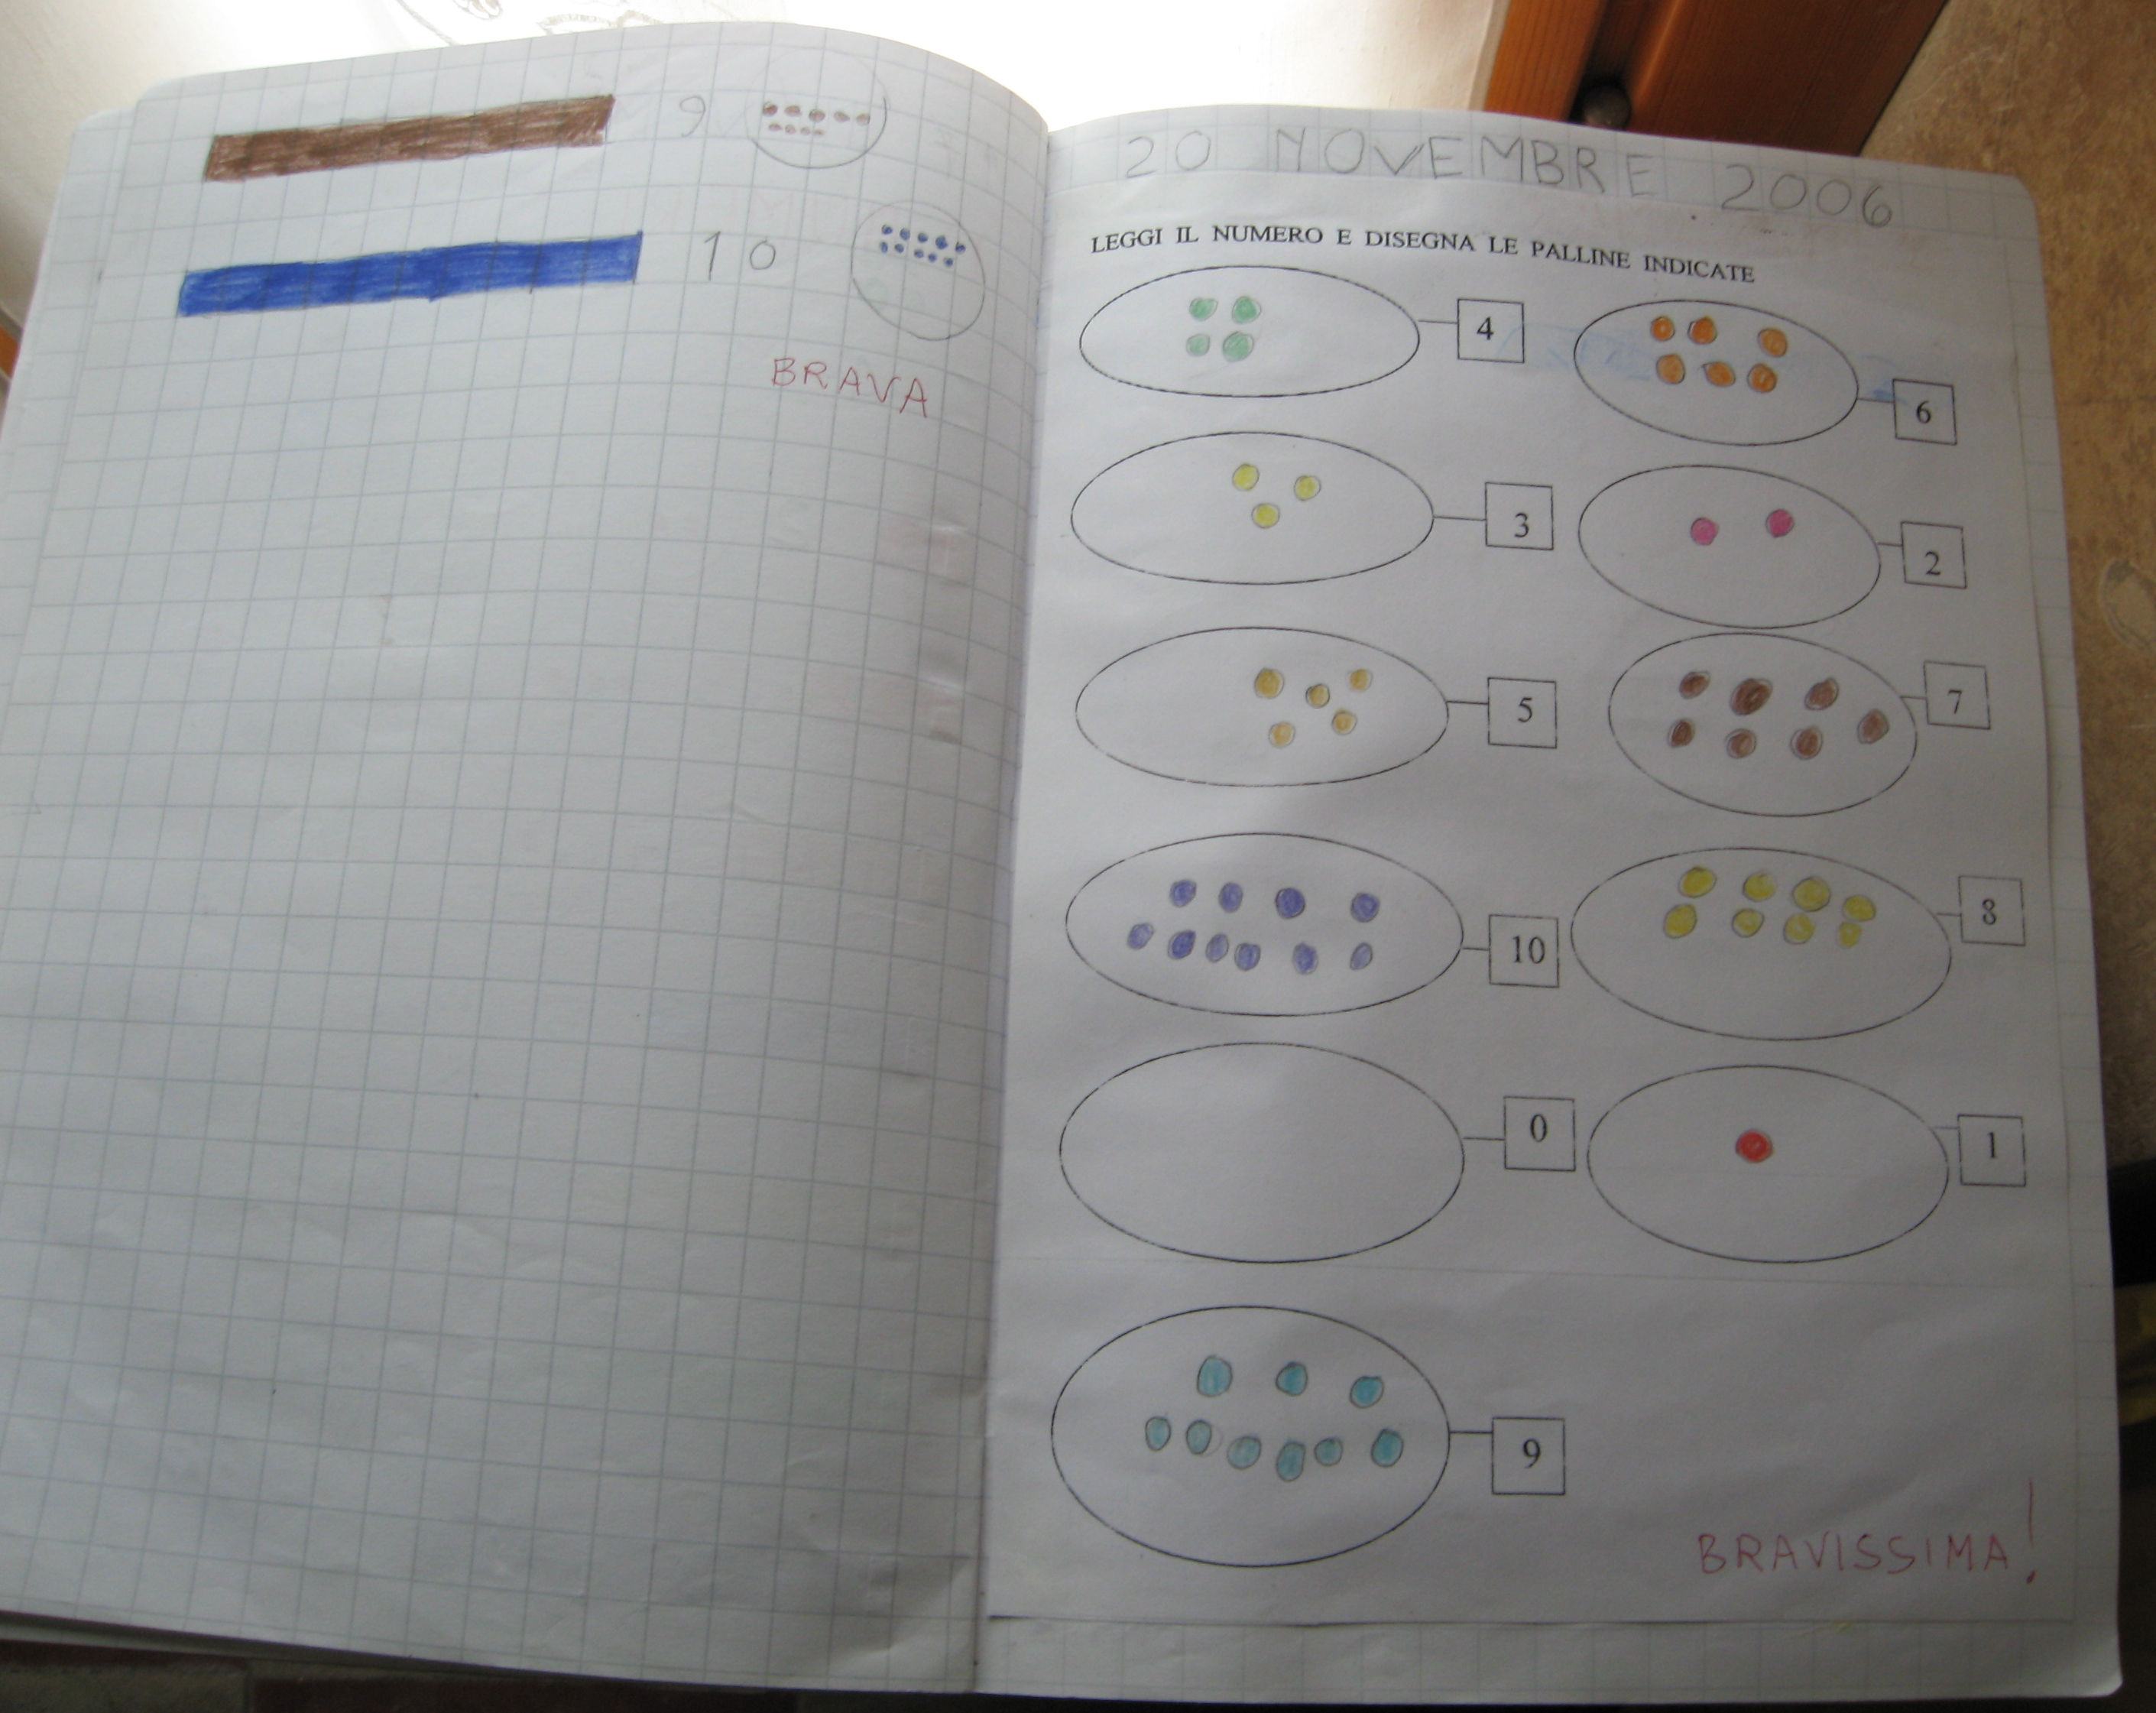 9
10
BRAVA
20 NOVEMBRE 2006
LEGGI IL NUMERO E DISEGNA LE PALLINE INDICATE
4
6
3
2
5
7
10
8
0
1
9
BRAVISSIMA!